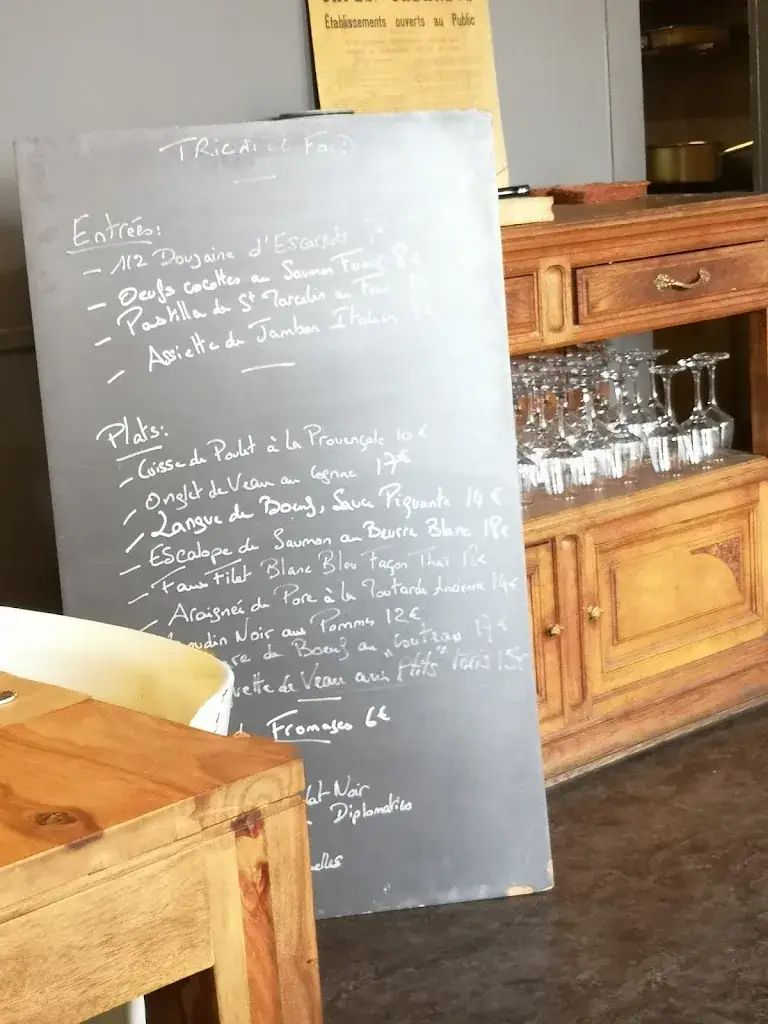 Etablissements ouverts au Public
Entrées:
- 1/2 Douzaine d'Escargots
- Oeufs cocottes au Saumon Fumé 8€
- Pastilla de St Marcelin au Four
- Assiette de Jambon Italien
Plats:
- Cuisse de Poulet à la Provençale 10€
- Onglet de Veau au Cognac 17€
- Langue de Boeuf, Sauce Piquante 14€
- Escalope de Saumon au Beurre Blanc 18€
- Faux Filet Blanc Bleu Façon Thaï
- Araignée de Porc à la Moutarde Ancienne 14€
oudin Noir aux Pommes 12€
re de Boeuf au "Couteau" 17€
vette de Veau aux Petits 15€
Fromages 6€
lat Noir
Diplomatico
elles